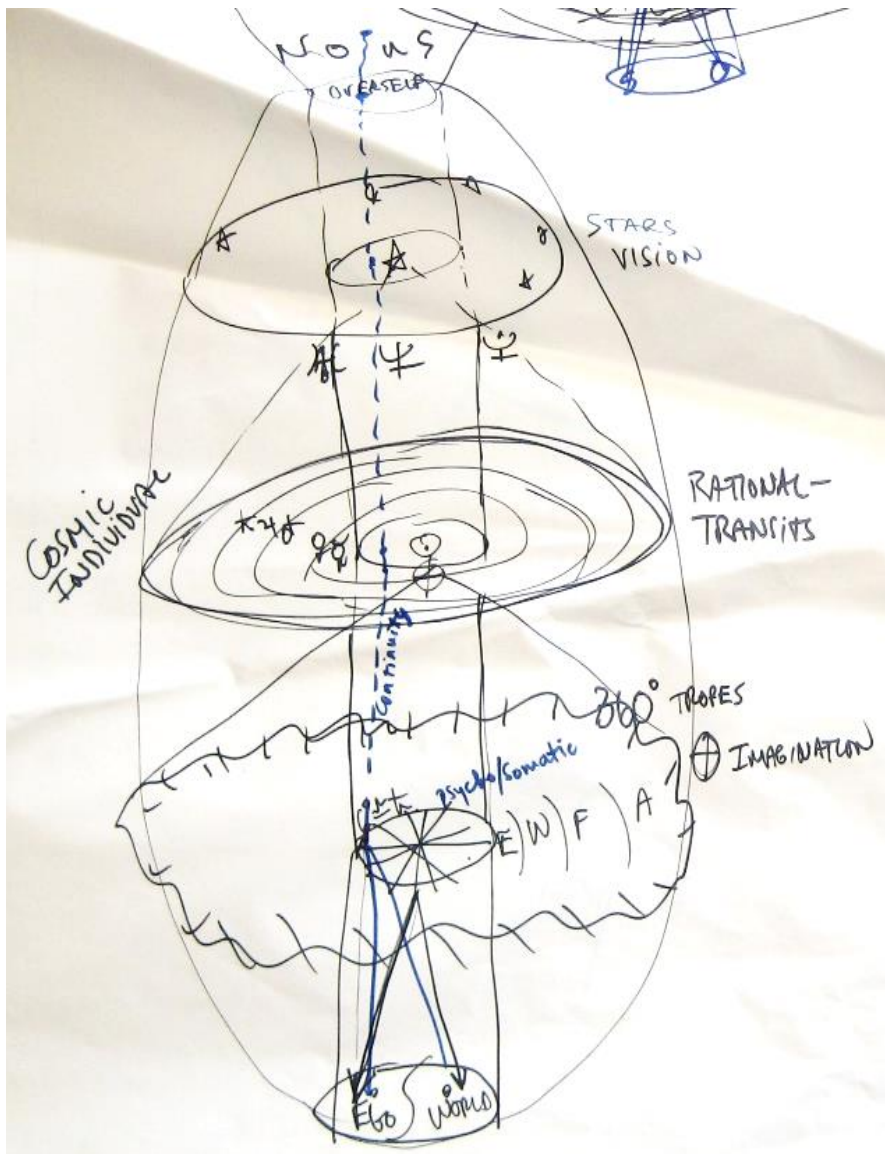 NOUS
OVERSELF
STARS
VISION
COSMIC
INDIVIDUAL
RATIONAL-
TRANSITS
continuity
360° TROPES
⊕ IMAGINATION
psycho/somatic
E) W) F ) A
EGO WORLD